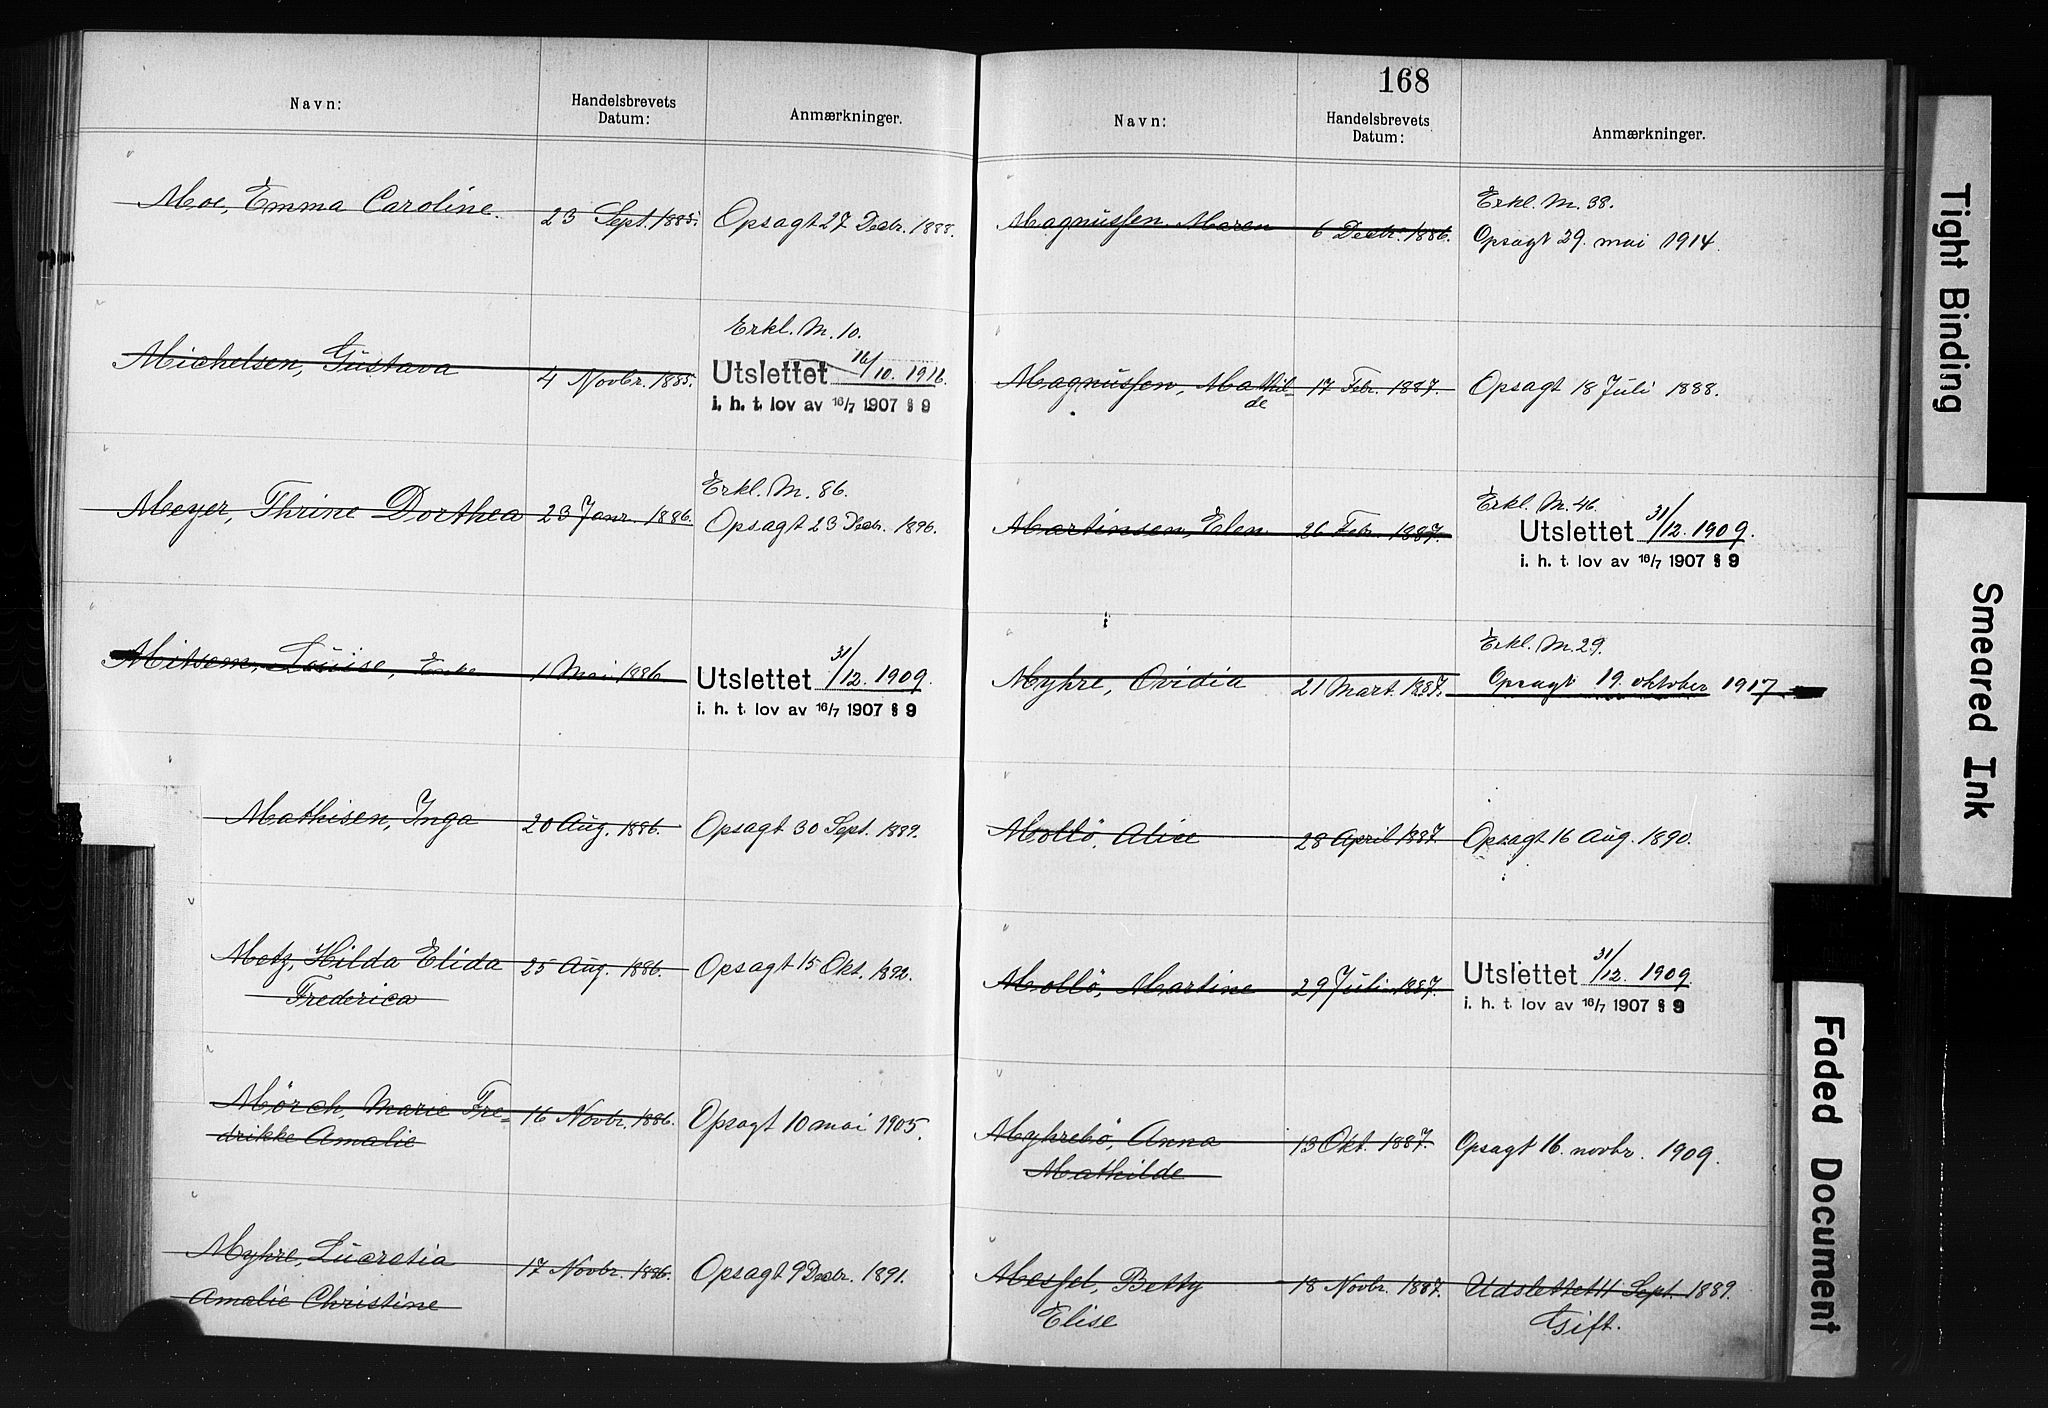 Navn:
Handelsbrevets
Datum:
Anmærkninger.
Moe, Emma Caroline. 23 Sept. 1885. Opsagt 27 Decbr. 1888.
Erkl. M. 10.
Michelsen, Gustava 4 Novbr. 1885. Utslettet 16/10. 1916.
i. h. t. lov av 16/7 1907 § 9
Erkl. M. 86.
Meyer, Thrine Dorthea 23 Janr. 1886. Opsagt 23 Decbr. 1896.
Louise, Enke 1 Mai 1886. Utslettet 31/12. 1909.
i. h. t. lov av 16/7 1907 § 9
Mathisen, Inga 20 Aug. 1886. Opsagt 30 Sept. 1889.
Metz, Hilda Elida 25 Aug. 1886. Opsagt 15 Okt. 1890.
Frederica
Mörch, Marie Fre= 16 Novbr. 1886. Opsagt 10 mai 1905.
drikke Amalie
Myhre, Lucretia 17 Novbr. 1886. Opsagt 9 Decbr. 1891.
Amalie Christine
168
Navn:
Handelsbrevets
Datum:
Anmærkninger.
Erkl. M. 38.
Magnussen, Maren 6 Decbr. 1886. Opsagt 29. mai 1914.
Magnussen, Mathil= 17 Febr. 1887. Opsagt 18 Juli 1888.
de
Erkl. M. 46.
Martinsen, Elen 26 Febr. 1887. Utslettet 31/12. 1909.
i. h. t. lov av 16/7 1907 § 9
Erkl. M. 29.
Myhre, Ovidia 21 Mart. 1887. Opsagt 19. oktober 1917.
Mollö, Alice 28 April 1887. Opsagt 16 Aug. 1890.
Mollö, Martine 29 Juli 1887. Utslettet 31/12. 1909.
i. h. t. lov av 16/7 1907 § 9
Myhrebö, Anna 13 Okt. 1887. Opsagt 16. novbr. 1909.
Mathilde
Messel, Betty 18 Novbr. 1887. Udslettet 11 Sept. 1889.
Elise Gift.
Tight Binding
Smeared Ink
Faded Document